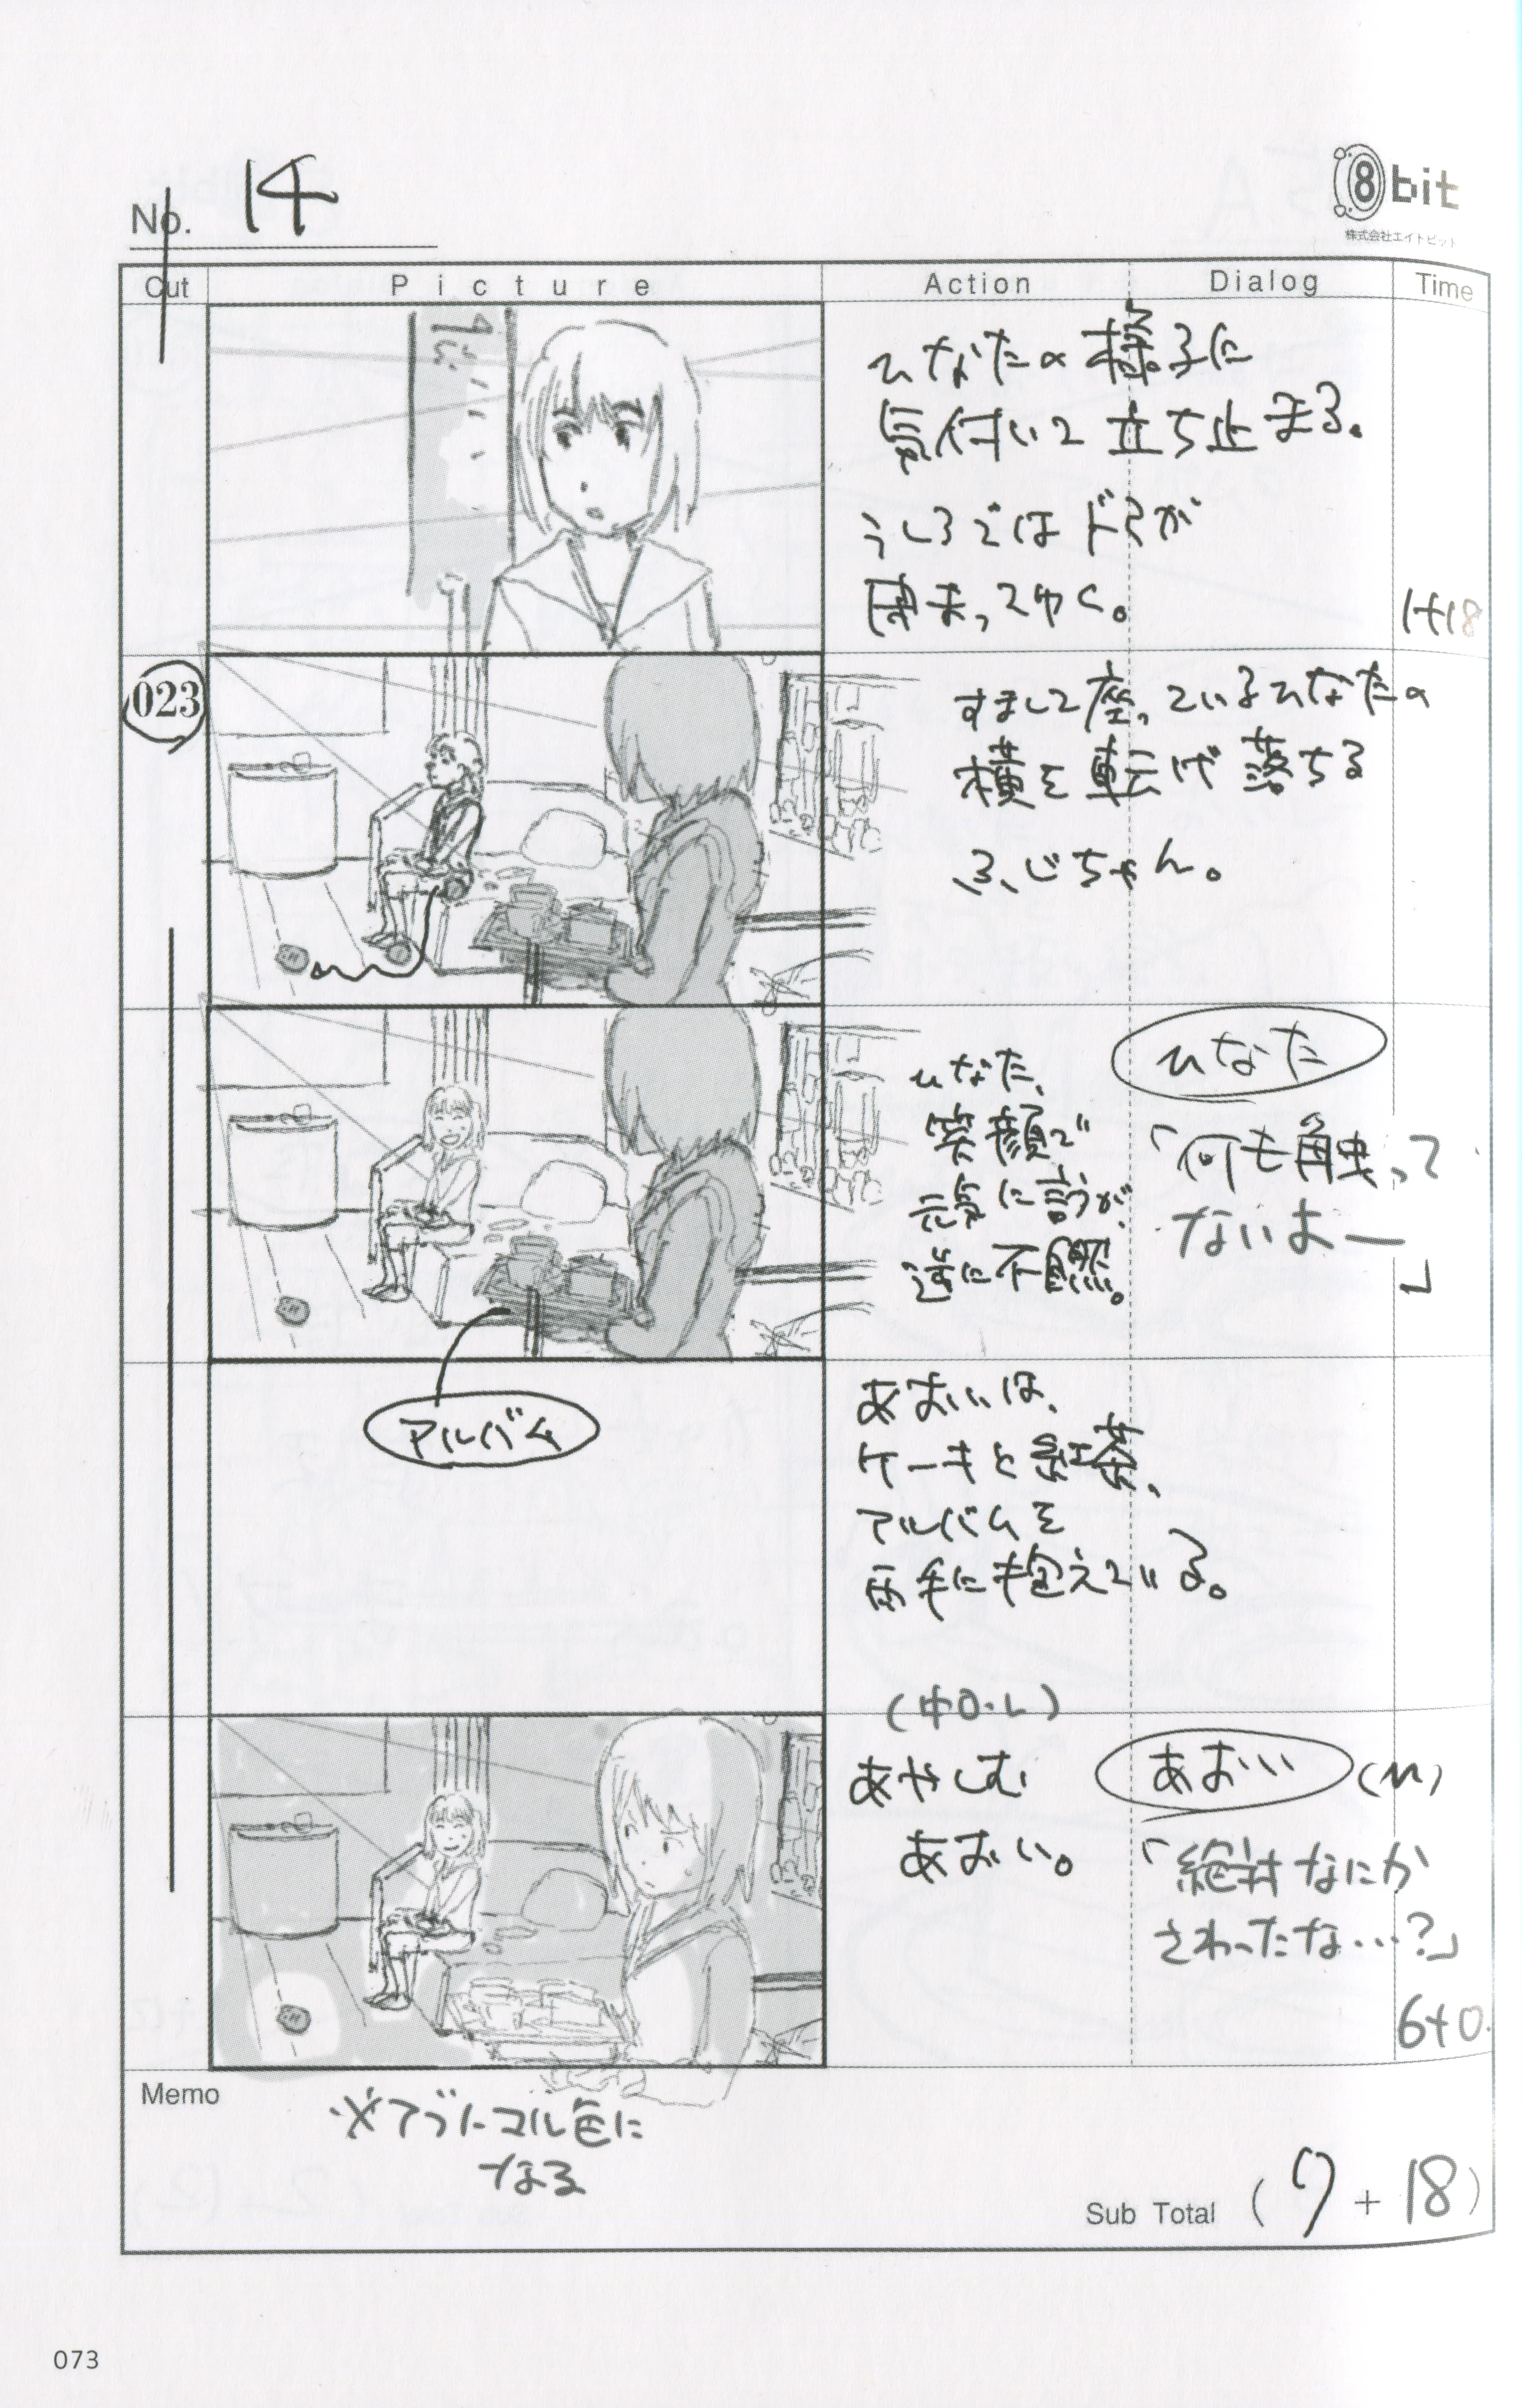 No. 14
8bit
株式会社エイトビット
Cut
Picture
Action
Dialog
Time
ひなたの様子に
気付いて立ち止まる。
うしろではドアが
閉まってゆく。
1+18
023
すまして座っているひなたの
横を転げ落ちる
ふじちゃん。
ひなた、
笑顔で
元気に言うが、
逆に不自然。
ひなた
「何も触って
ないよー
」
アルバム
あおいは、
ケーキと紅茶、
アルバムを
両手に抱えている。
(中O.L)
あやしむ
あおい。
あおい (M)
「絶対なにか
さわったな…?」
6+0
Memo
※アブノーマル色に
なる
Sub Total (7+18)
073